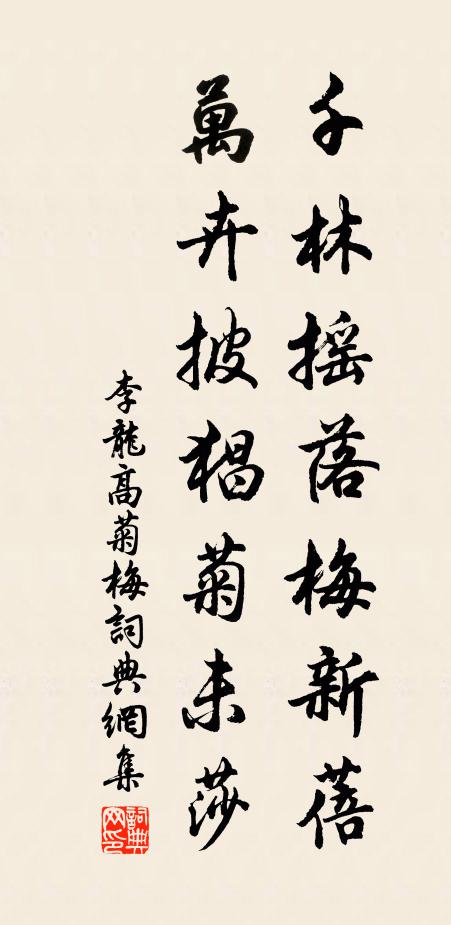 千林摇落梅新蓓
萬卉披猖菊未莎
李龍高菊梅詞典網集
詞典網印